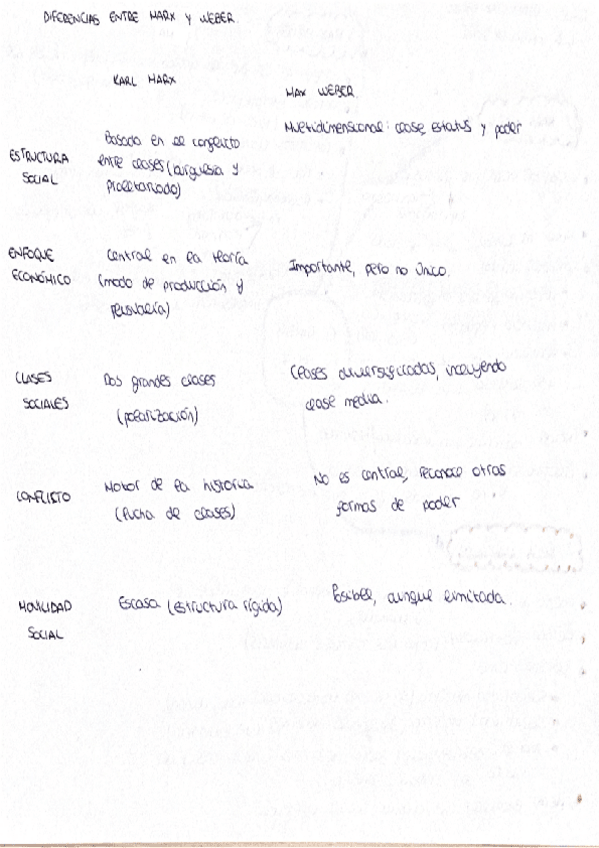 DIFERENCIAS ENTRE MARX Y WEBER.
KARL MARX
MAX WEBER
ESTRUCTURA
SOCIAL
Basado en el conflicto
entre clases (burguesía y
proletariado)
Multidimensional: clase, estatus y poder
ENFOQUE
ECONÓMICO
Central en la teoría
(modo de producción y
plusvalía)
Importante, pero no único.
CLASES
SOCIALES
Dos grandes clases
(polarización)
Clases diversificadas, incluyendo
clase media.
CONFLICTO
Motor de la historia
(lucha de clases)
No es central, reconoce otras
formas de poder
MOVILIDAD
SOCIAL
Escasa (estructura rígida)
Posible, aunque limitada.